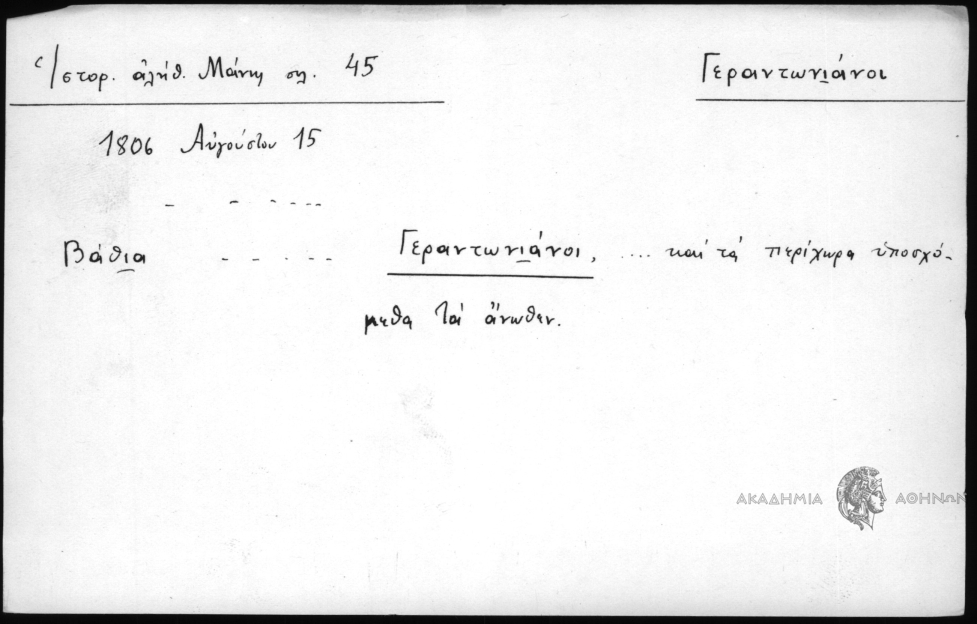 Ἱστορ. ἀλήθ. Μάνη σελ. 45
Γεραντωνιάνοι
1806 Αὐγούστου 15
- - - - - -
Βάθια - - - - - Γεραντωνιάνοι, .... καί τά περίχωρα ὑποσχό-
μεθα τά ἄνωθεν.
ΑΚΑΔΗΜΙΑ ΑΘΗΝΩΝ